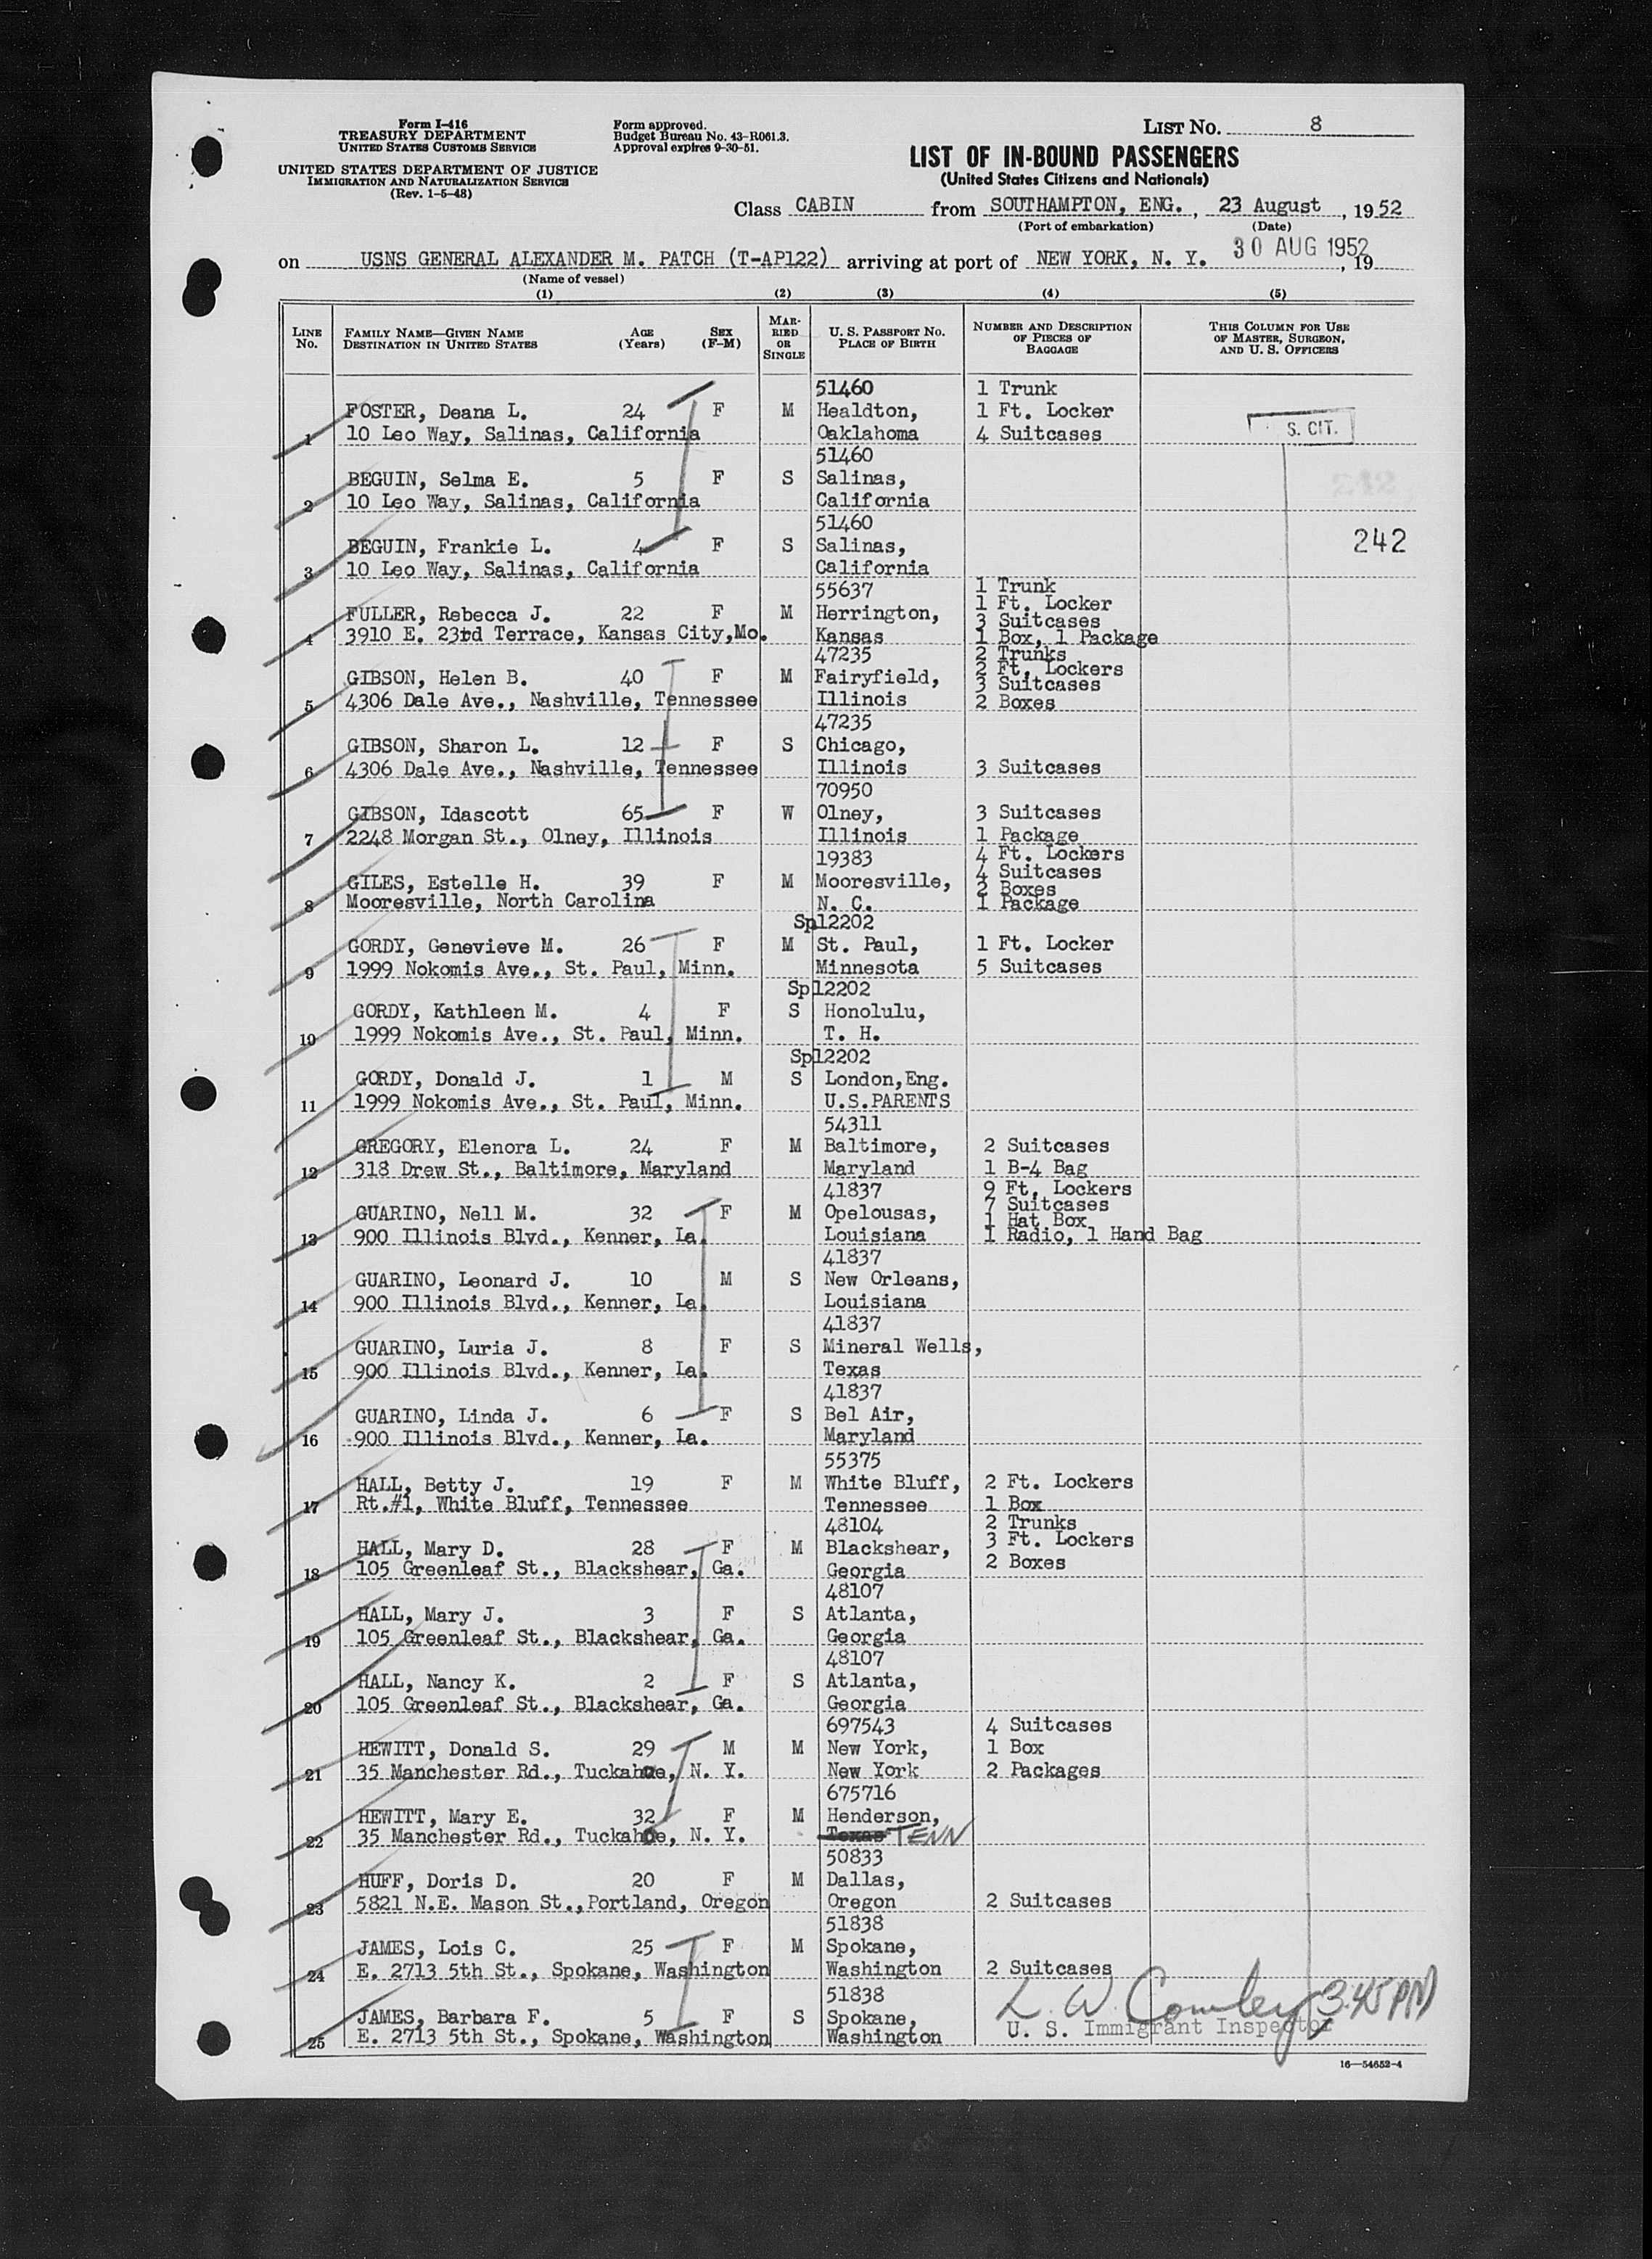 Form I-416
TREASURY DEPARTMENT
UNITED STATES CUSTOMS SERVICE
UNITED STATES DEPARTMENT OF JUSTICE
IMMIGRATION AND NATURALIZATION SERVICE
(Rev. 1-5-48)
Form approved.
Budget Bureau No. 43-R061.3.
Approval expires 9-30-51.
LIST NO. 8
LIST OF IN-BOUND PASSENGERS
(United States Citizens and Nationals)
Class CABIN from SOUTHAMPTON, ENG., 23 August, 1952
(Port of embarkation) (Date)
on USNS GENERAL ALEXANDER M. PATCH (T-AP122) arriving at port of NEW YORK, N. Y. 30 AUG 1952, 19
(Name of vessel)
(1) (2) (3) (4) (5)
LINE NO. FAMILY NAME—GIVEN NAME DESTINATION IN UNITED STATES AGE (Years) SEX (F-M) MARRIED OR SINGLE U. S. PASSPORT NO. PLACE OF BIRTH NUMBER AND DESCRIPTION OF PIECES OF BAGGAGE THIS COLUMN FOR USE OF MASTER, SURGEON, AND U. S. OFFICERS
51460 1 Trunk
FOSTER, Deana L. 24 F M Healdton, 1 Ft. Locker
1 10 Leo Way, Salinas, California Oaklahoma 4 Suitcases S. CIT.
51460
BEGUIN, Selma E. 5 F S Salinas,
2 10 Leo Way, Salinas, California California 242
51460
BEGUIN, Frankie L. 4 F S Salinas, 242
3 10 Leo Way, Salinas, California California
55637 1 Trunk
1 Ft. Locker
FULLER, Rebecca J. 22 F M Herrington, 3 Suitcases
4 3910 E. 23rd Terrace, Kansas City,Mo. Kansas 1 Box, 1 Package
47235 2 Trunks
2 Ft. Lockers
GIBSON, Helen B. 40 F M Fairyfield, 3 Suitcases
5 4306 Dale Ave., Nashville, Tennessee Illinois 2 Boxes
47235
GIBSON, Sharon L. 12 F S Chicago,
6 4306 Dale Ave., Nashville, Tennessee Illinois 3 Suitcases
70950
GIBSON, Idascott 65 F W Olney, 3 Suitcases
7 2248 Morgan St., Olney, Illinois Illinois 1 Package
19383 4 Ft. Lockers
4 Suitcases
GILES, Estelle H. 39 F M Mooresville, 2 Boxes
8 Mooresville, North Carolina N. C. 1 Package
Sp12202
GORDY, Genevieve M. 26 F M St. Paul, 1 Ft. Locker
9 1999 Nokomis Ave., St. Paul, Minn. Minnesota 5 Suitcases
Sp12202
GORDY, Kathleen M. 4 F S Honolulu,
10 1999 Nokomis Ave., St. Paul, Minn. T. H.
Sp12202
GORDY, Donald J. 1 M S London,Eng.
11 1999 Nokomis Ave., St. Paul, Minn. U.S.PARENTS
54311
GREGORY, Elenora L. 24 F M Baltimore, 2 Suitcases
12 318 Drew St., Baltimore, Maryland Maryland 1 B-4 Bag
41837 9 Ft. Lockers
7 Suitcases
GUARINO, Nell M. 32 F M Opelousas, 1 Hat Box
13 900 Illinois Blvd., Kenner, La. Louisiana 1 Radio, 1 Hand Bag
41837
GUARINO, Leonard J. 10 M S New Orleans,
14 900 Illinois Blvd., Kenner, La. Louisiana
41837
GUARINO, Luria J. 8 F S Mineral Wells,
15 900 Illinois Blvd., Kenner, La. Texas
41837
GUARINO, Linda J. 6 F S Bel Air,
16 900 Illinois Blvd., Kenner, La. Maryland
55375
HALL, Betty J. 19 F M White Bluff, 2 Ft. Lockers
17 Rt.#1, White Bluff, Tennessee Tennessee 1 Box
48104 2 Trunks
HALL, Mary D. 28 F M Blackshear, 3 Ft. Lockers
18 105 Greenleaf St., Blackshear, Ga. Georgia 2 Boxes
48107
HALL, Mary J. 3 F S Atlanta,
19 105 Greenleaf St., Blackshear, Ga. Georgia
48107
HALL, Nancy K. 2 F S Atlanta,
20 105 Greenleaf St., Blackshear, Ga. Georgia
697543 4 Suitcases
HEWITT, Donald S. 29 M M New York, 1 Box
21 35 Manchester Rd., Tuckahoe, N. Y. New York 2 Packages
675716
HEWITT, Mary E. 32 F M Henderson,
22 35 Manchester Rd., Tuckahoe, N. Y. Texas TENN
50833
HUFF, Doris D. 20 F M Dallas,
23 5821 N.E. Mason St.,Portland, Oregon Oregon 2 Suitcases
51838
JAMES, Lois C. 25 F M Spokane,
24 E. 2713 5th St., Spokane, Washington Washington 2 Suitcases
51838 L. W. Cowley 3:45 PM
JAMES, Barbara F. 5 F S Spokane, U. S. Immigrant Inspector
25 E. 2713 5th St., Spokane, Washington Washington
16—54652-4